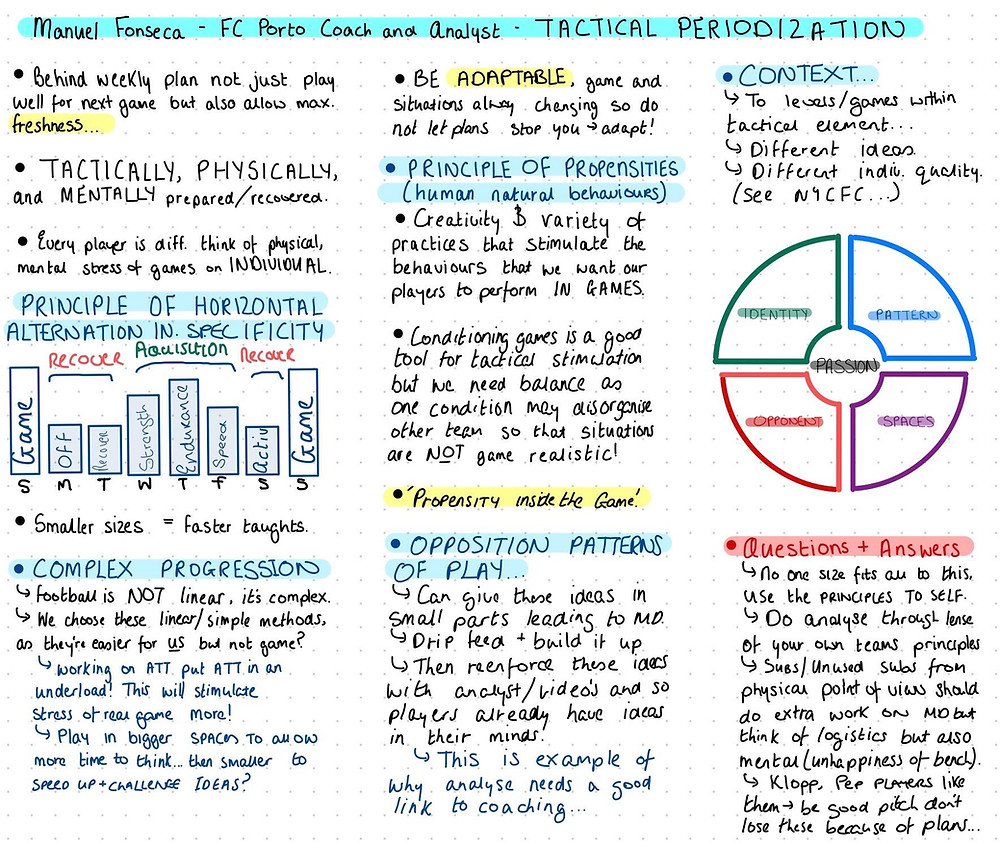 Manuel Fonseca - FC Porto Coach and Analyst - TACTICAL PERIODIZATION
• Behind weekly plan not just play
well for next game but also allow max.
freshness...
• TACTICALLY, PHYSICALLY,
and MENTALLY prepared/recovered.
• Every player is diff. think of physical,
mental stress of games on INDIVIDUAL.
PRINCIPLE OF HORIZONTAL
ALTERNATION IN SPECIFICITY
RECOVER Acquisition Recover
Game
Off
Recover
Strength
Endurance
Speed
Activ
Game
S M T W T F S S
• Smaller sizes = faster taughts.
• COMPLEX PROGRESSION
↳ Football is NOT linear, it's complex.
↳ We choose these linear/simple methods,
as they're easier for us but not game?
↳ working on ATT. put ATT in an
underload! This will stimulate
stress of real game more!
↳ Play in bigger SPACES TO allow
more time to think... then smaller to
SPEED UP + CHALLENGE IDEAS?
• BE ADAPTABLE, game and
situations alway changing so do
not let plans stop you → adapt!
• PRINCIPLE OF PROPENSITIES
(human natural behaviours)
• Creativity & variety of
practices that stimulate the
behaviours that we want our
players to perform IN GAMES.
• Conditioning games is a good
tool for tactical stimulation
but we need balance as
one condition may disorganise
other team so that situations
are NOT game realistic!
• 'Propensity inside the Game!'
• OPPOSITION PATTERNS
OF PLAY...
↳ Can give these ideas in
small parts leading to MD.
↳ Drip feed + build it up
↳ Then reenforce these ideas
with analyst/video's and so
players already have ideas
in their minds!
↳ This is example of
why analyse needs a good
link to coaching...
• CONTEXT...
↳ To levels/games within
tactical element...
↳ Different ideas
↳ Different indiv. quality.
(See NYCFC...)
IDENTITY
PATTERN
PASSION
OPPONENT
SPACES
• Questions + Answers
↳ No one size fits all to this,
use the PRINCIPLES TO SELF.
↳ Do analyse through lense
of your own teams principles
↳ Subs/Unused subs from
physical point of view should
do extra work on MD but
think of logistics but also
mental (unhappiness of bench).
↳ Klopp, Pep PLAYERS like
them → be good pitch don't
lose these because of plans...